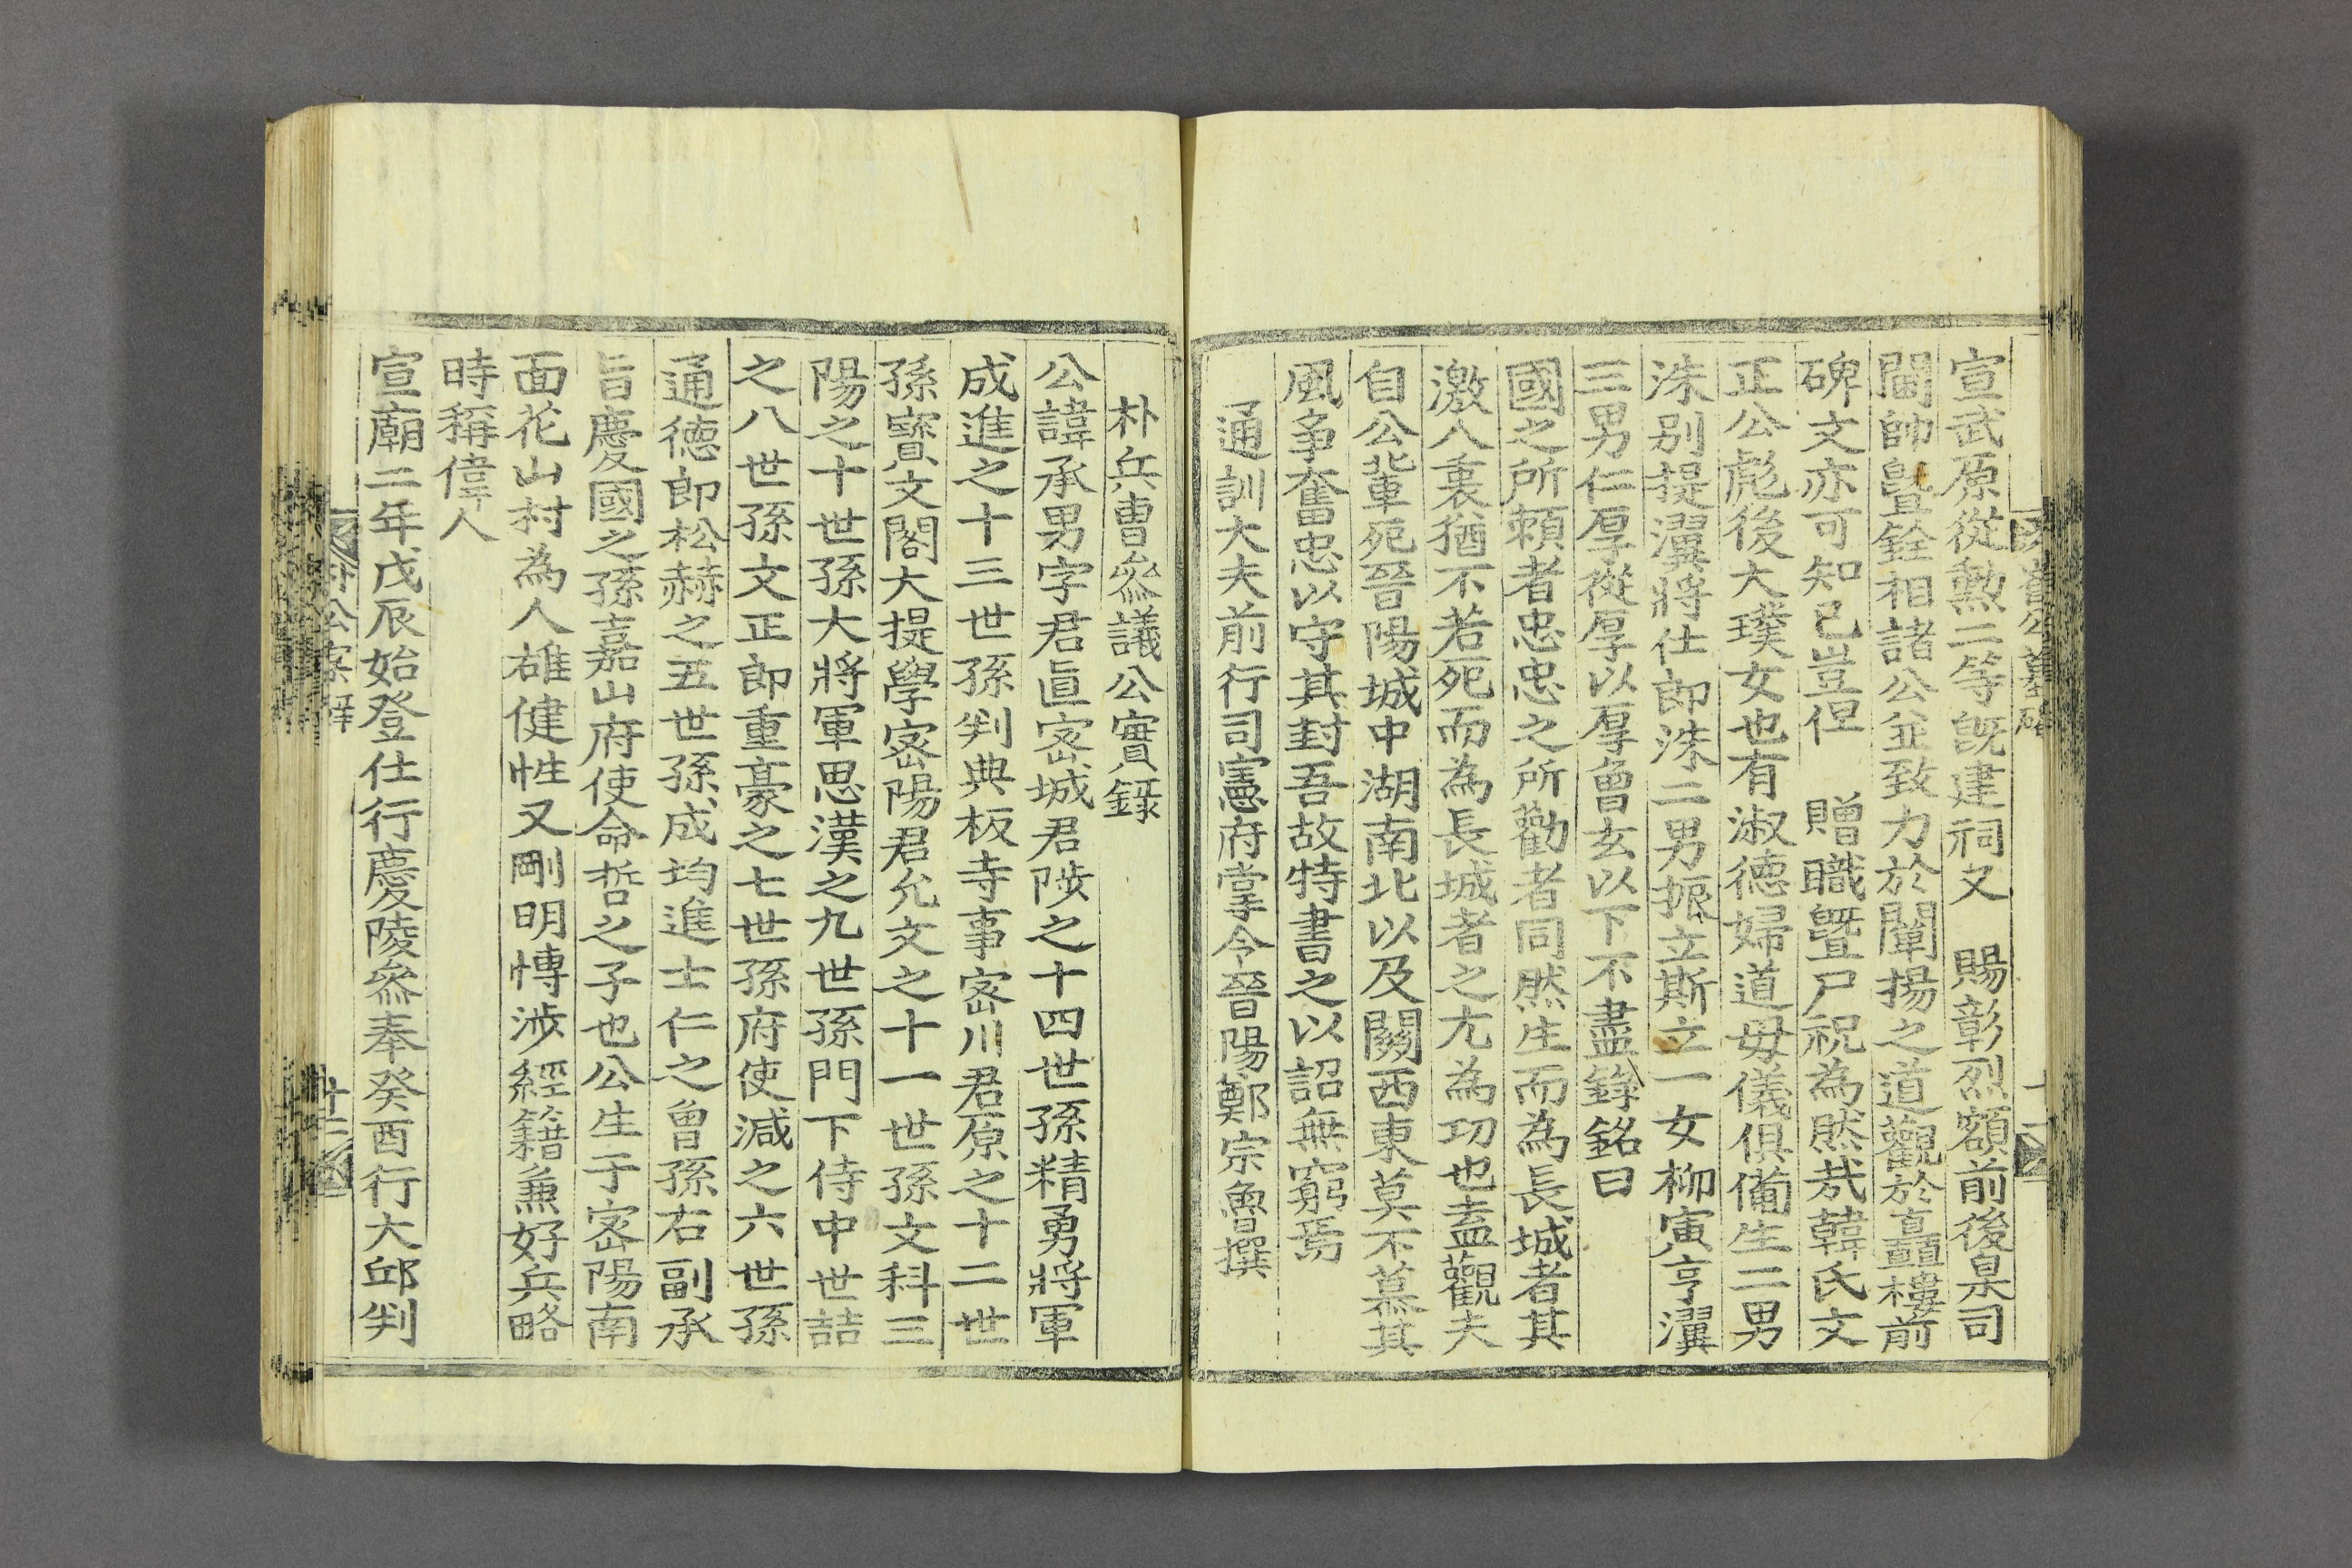 宣武原從勲二等旣建祠又 賜彰烈額前後臬司
閫帥曁銓相諸公並致力於闡揚之道觀於矗樓前
碑文亦可知已豈但 贈職曁尸祝為然哉韓氏文
正公彪後大璞女也有淑徳婦道毋儀俱備生二男
洙别提瀷將仕郎洙二男振立斯立一女柳寅亨瀷
三男仁厚從厚以厚曾玄以下不盡錄銘曰
國之所頼者忠忠之所勸者同然生而為長城者其
激八裏猶不若死而為長城者之尤為功也盍觀夫
自公軰死晉陽城中湖南北以及關西東莫不慕其
風争奮忠以守其封吾故特書之以詔無窮焉
通訓大夫前行司憲府掌令晉陽鄭宗魯撰
朴兵曺叅議公實錄
公諱承男字君眞宻城君陟之十四世孫精勇將軍
成進之十三世孫判典板寺事宻川君原之十二世
孫寳文閣大提學宻陽君允文之十一世孫文科三
陽之十世孫大將軍思漢之九世孫門下侍中世喆
之八世孫文正郎重豪之七世孫府使減之六世孫
通徳郎松赫之五世孫成均進士仁之曾孫右副承
旨慶國之孫嘉山府使命哲之子也公生于宻陽南
面花山村為人雄健性又剛明博涉經籍兼好兵略
時稱偉人
宣廟二年戊辰始登仕行慶陵叅奉癸酉行大邱判
朴公實錄
十二